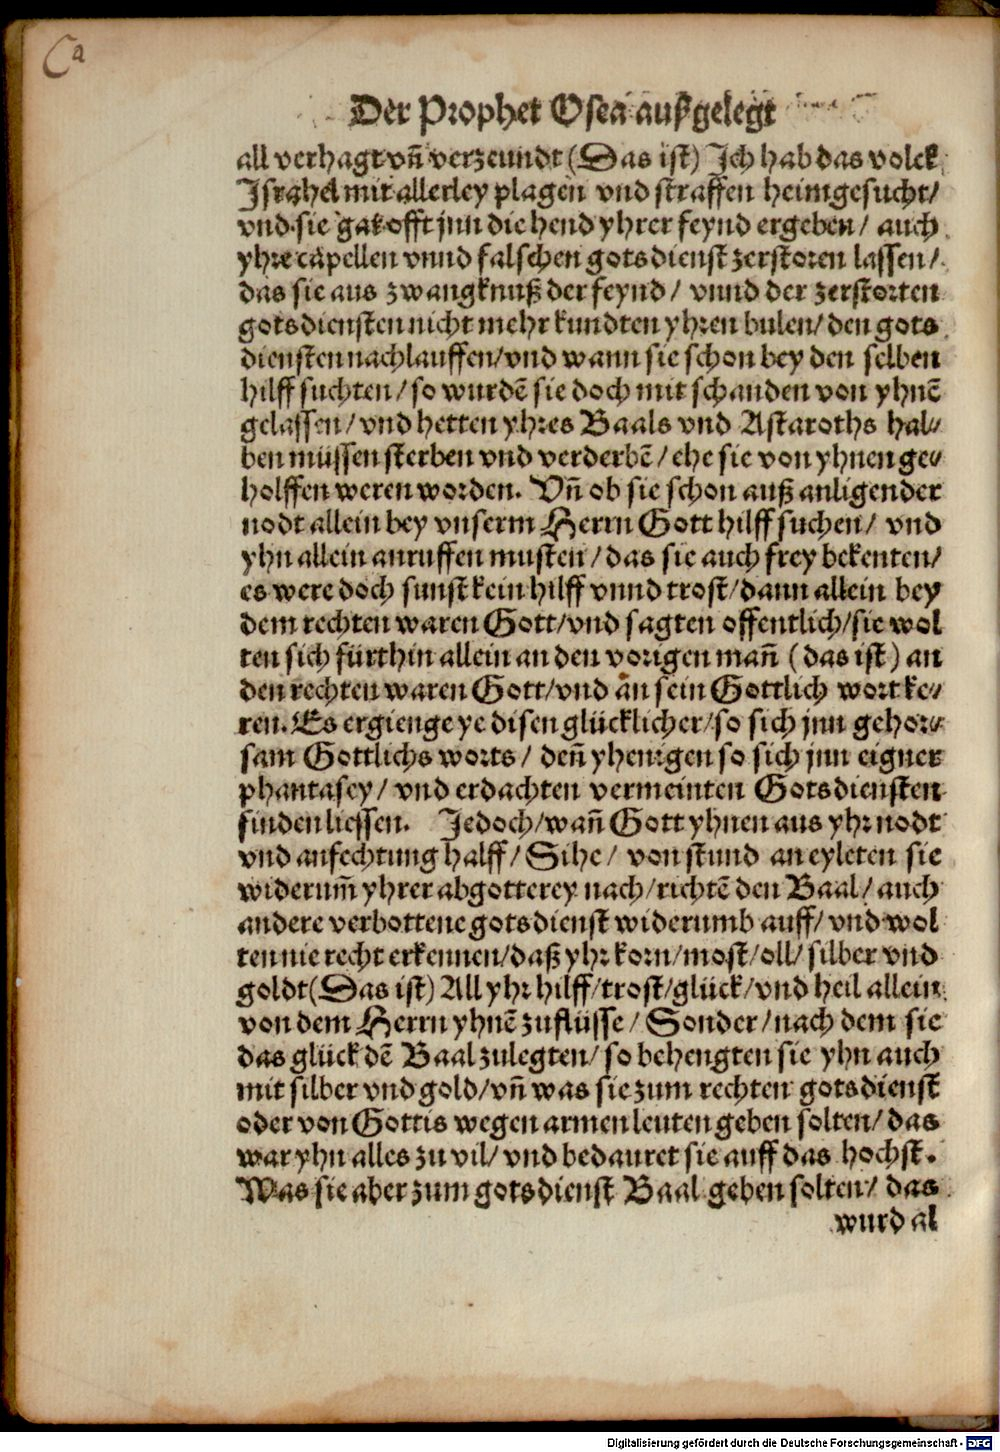 Ca
Der Prophet Osea außgelegt
all verhagt vñ verzeundt (Das ist) Ich hab das volck
Israhel mit allerley plagen vnd straffen heimgesucht/
vnd sie gar offt jnn die hend yhrer feynd ergeben/ auch
yhre capellen vnnd falschen gotsdienst zerstoren lassen/
das sie aus zwangknuß der feynd/ vnnd der zerstorten
gotsdiensten nicht mehr kundten yhren bulen/ den gots
diensten nachlauffen/ vnd wann sie schon bey den selben
hilff suchten/ so wurdẽ sie doch mit schanden von yhnẽ
gelassen/ vnd hetten yhres Baals vnd Astaroths hal⸗
ben müssen sterben vnd verderbẽ/ ehe sie von yhnen ge⸗
holffen weren worden. Vñ ob sie schon auß anligender
nodt allein bey vnserm Herrn Gott hilff suchen/ vnd
yhn allein anruffen musten/ das sie auch frey bekenten/
es were doch sunst kein hilff vnnd trost/ dann allein bey
dem rechten waren Gott/ vnd sagten offentlich/ sie wol
ten sich fürthin allein an den vorigen mañ (das ist) an
den rechten waren Gott/ vnd an sein Gottlich wort ke⸗
ren. Es ergienge ye disen glücklicher/ so sich jnn gehor⸗
sam Gottlichs worts/ deñ yhenigen so sich jnn eigner
phantasey/ vnd erdachten vermeinten Gotsdiensten
finden liessen. Jedoch/ wañ Gott yhnen aus yhr nodt
vnd anfechtung halff/ Sihe/ von stund an eyleten sie
widerum̃ yhrer abgotterey nach/ richtẽ den Baal/ auch
andere verbottene gotsdienst widerumb auff/ vnd wol
ten nie recht erkennen/ daß yhr korn/ most/ oll/ silber vnd
goldt (Das ist) All yhr hilff/ trost/ glück/ vnd heil allein
von dem Herrn yhnẽ zuflüsse/ Sonder/ nach dem sie
das glück dẽ Baal zulegten/ so behengten sie yhn auch
mit silber vnd gold/ vñ was sie zum rechten gotsdienst
oder von Gottis wegen armen leuten geben solten/ das
war yhn alles zu vil/ vnd bedauret sie auff das hochst.
Was sie aber zum gotsdienst Baal geben solten/ das
wurd al
Digitalisierung gefördert durch die Deutsche Forschungsgemeinschaft - DFG